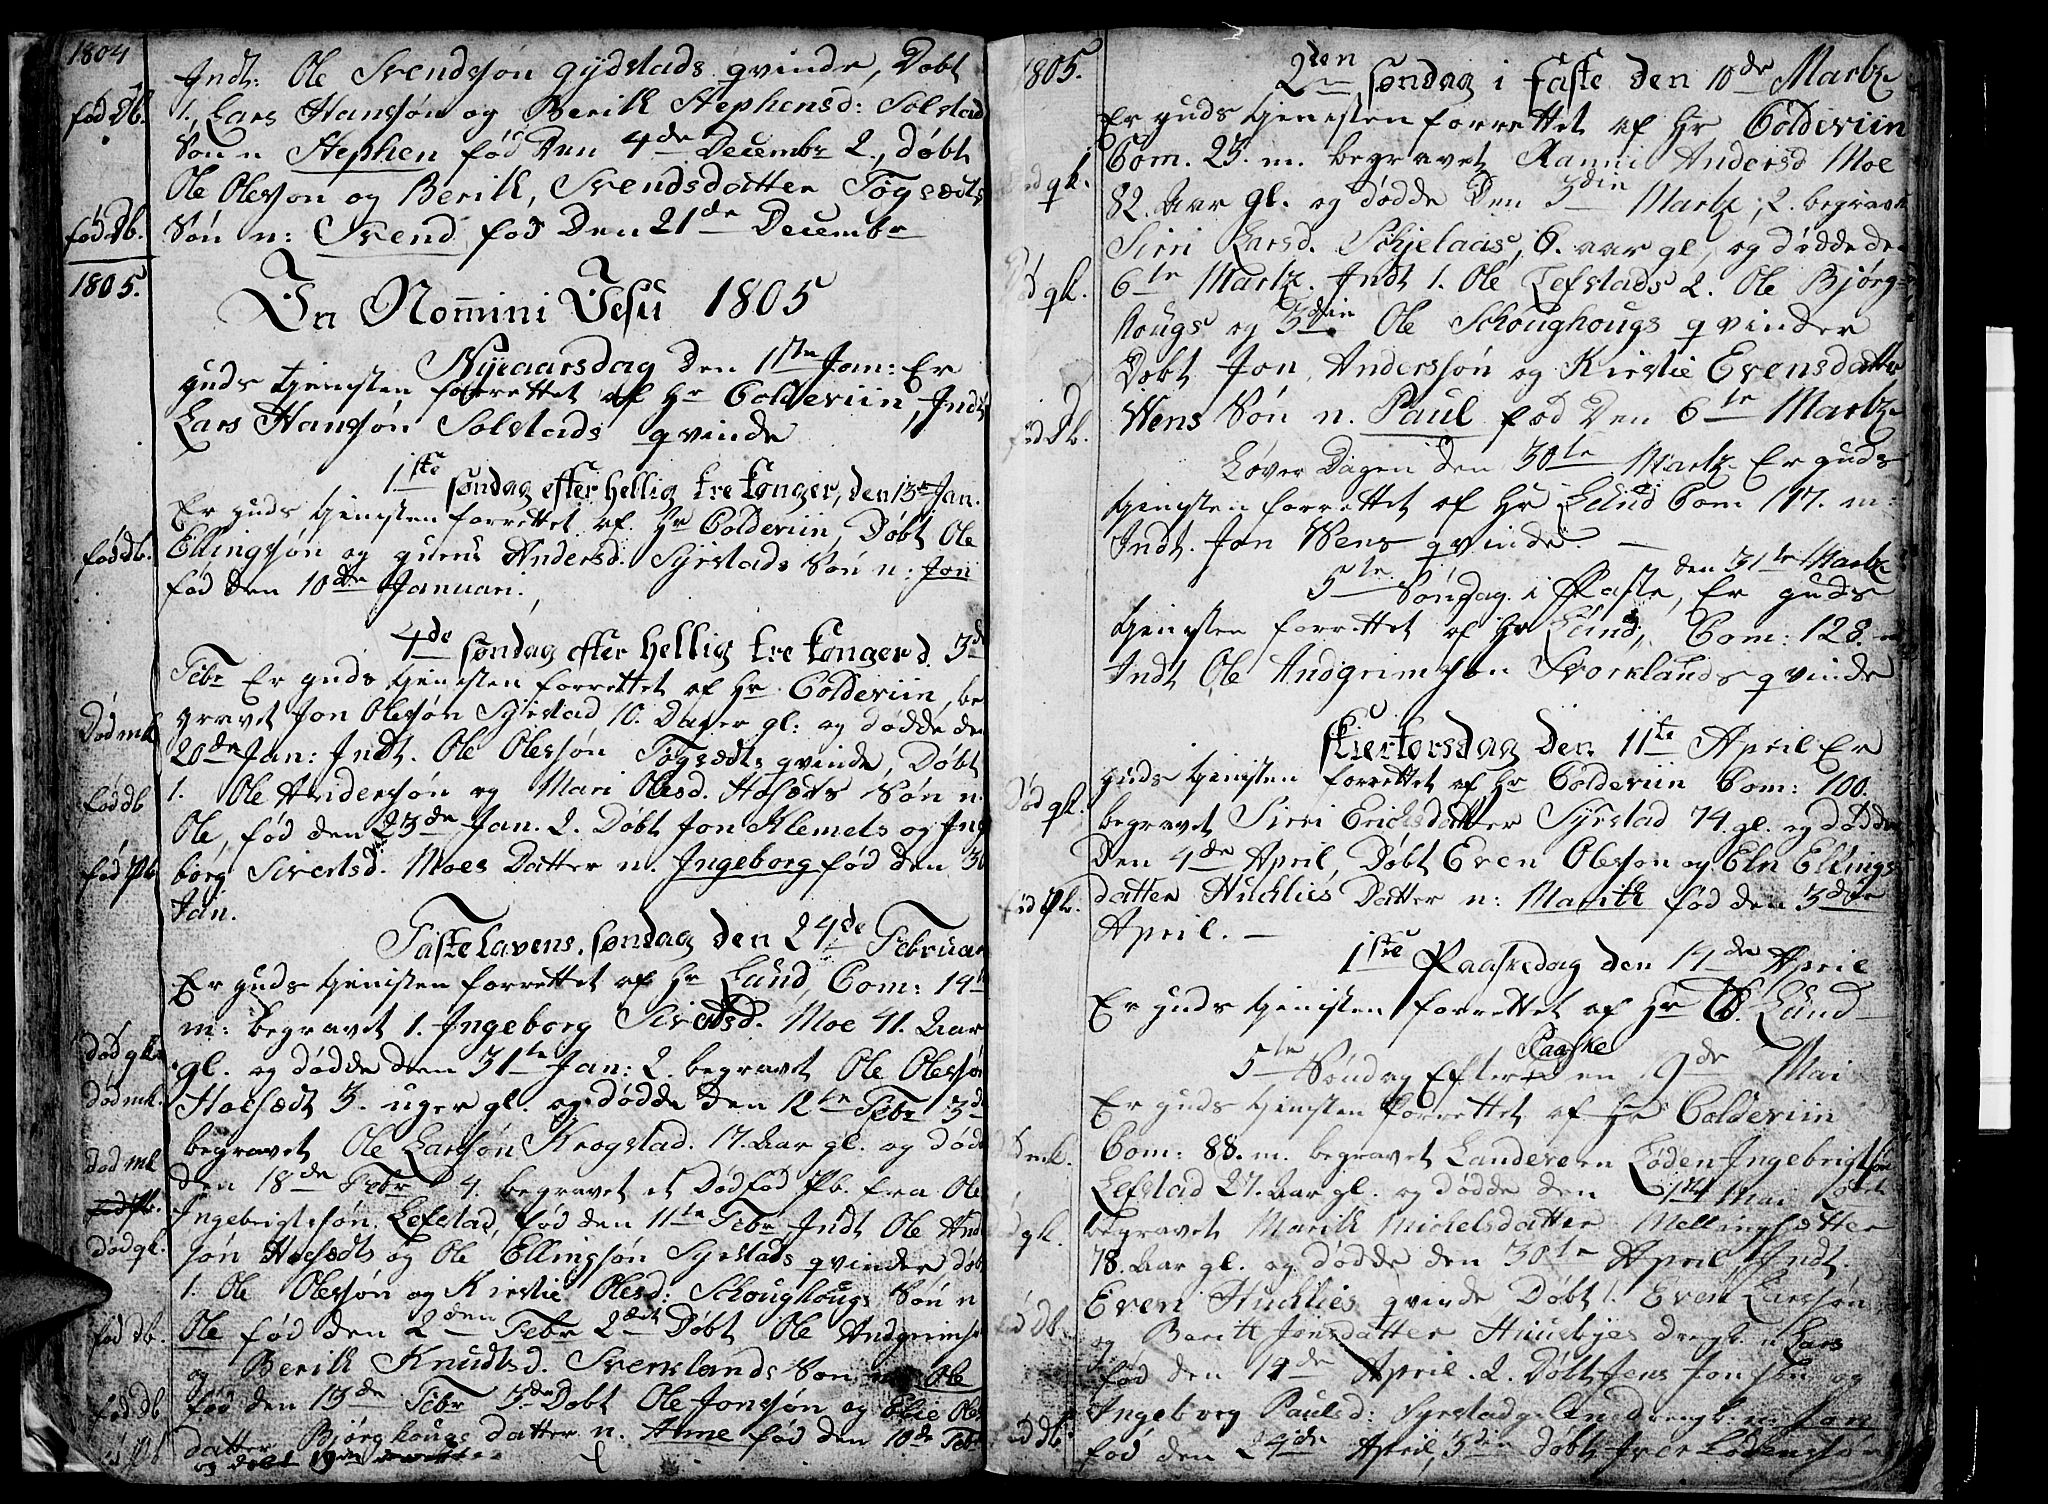 1804
Indt: Ole Svendsøn gydstads qvinde, Døbt
fød Db. 1. Lars Hansøn og Berit Stephensd: Solstad
Søn n Stephen fød Den 4de Decembr 2, døbt
Ole Olesøn og Berit, Svendsdatter Fogsædts
fød Db. Søn n: Svend fød Den 21de Decembr
1805.
In Nomini Jesu 1805
Nyeaarsdag Den 1ste Jan: Er
guds tjenisten forrettet af Hr Colderiin, Indt
Lars Hansøn Solstads qvinde
1ste søndag efter hellig tre konger, den 13de Jan.
Er guds tjenisten forrettet af Hr Colderiin, Døbt Ole
fød db. Ellingsøn og guru Andersd. Syrstads Søn n: Jon
fød den 10de Januari.
4de søndag efter hellig tre konger d. 3de
Febr Er guds tjenisten forrettet af Hr Colderiin, be
Død mk gravet Jon Olesøn Syrstad 10. Dager gl: og dødde de
20de Jan: Indt. Ole Olesøn Fogsædts qvinde, Døbt
fød db 1. Ole Andersøn og Mari Olesd. Hofsæts Søn n.
Ole, fød den 23de Jan. 2. Døbt Jon Klemets og Inge
fød Pb. borg Sivertsd. Moes Datter n. Ingeborg fød den 30
Jan.
Fastelavens søndag den 24de Februar
Er guds tjenisten forrettet af Hr Lund, Com: 19
m: begravet 1. Ingeborg Sivertsd. Moe 41. Aar
død qk. gl. og dødde den 31te Jan: 2. begravet Ole Olesøn
død mk. Hofsædt 3. uger gl. og dødde den 12te Febr 3d
begravet Ole Larsøn Krogstad. 17. Aar gl. og døde
død mk den 18de Febr 4. begravet et Dødfød Pb. fra Ole
Ingebrigtsøn Lefstad, fød den 11te Febr Indt Ole And
død qk. søn Hofsædts og Ole Ellingsøn Syrstads qvinder døb
1. Ole Olesøn og Kirstie Olesd: Schoughougs Søn n
fød db. Ole fød den 2den Febr 2det Døbt Ole Andgrims
og Berit Knudtsd. Svorklands Søn n. Ole
fød db fød den 13de Febr 3de Døbt Ole Jonsøn og Elie Oles
fød Pb datter Bjørghougs datter n. Anne fød den 10de Febr
og døbt 19de
1805.
2den søndag i faste den 10de Martz
Er guds tjenisten forrettet af Hr Colderiin
Com. 23. m. begravet Ranni Andersd Moe
død qk. 82. Aar gl. og dødde Den 3din Martz, 2. begravet
Sirri Larsd. Schjelaas, 6. aar gl, og dødde de
død qk. 6te Martz. Indt 1. Ole Lefstads 2. Ole Bjørg
hougs og 3din Ole Schoughougs qvinder
Døbt Jon Andersøn og Kirstie Evensdatter
fød Db. Wens Søn n. Paul fød Den 6te Martz
Løver Dagen den 30te Martz Er guds
tjenisten forrettet af Hr Lund Com 117. m:
Indt. Jon Wens qvinde. —
den 31te Martz
5te Søndag i Faste, Er guds
tjenisten forrettet af Hr Lund, Com: 128. m
Indt Ole Andgrimsøn Svorklands qvinde
Skiertorsdag Den 11te April Er
guds tjenisten forrettet af Hr Colderiin Com: 100.
død qk. begravet Sirri Erichsdatter Syrstad 74. gl. og dødde
Den 4de April, Døbt Even Olesøn og Eln Ellings
fød Pb. datter Hucklies Datter n: Maritt fød den 3de
April. —
1ste Paaskedag den 14de April
Er guds tjenisten forrettet af Hr Lund
5te Søndag Efter Paaske en 19de Mai
Er guds tjenisten forrettet af Hr Colderiin
død mk. Com: 88. m. begravet Landeveern Loden Ingebrigtsøn
Lefstad 27. Aar gl. og dødde den Mai
død qk. begravet Marit Michelsdatter Mellingsætter
78. Aar gl. og dødde den 30te April Indt.
Even Hucklies qvinde Døbt 1. Even Larsøn
fød Db og Beritt Jonsdatter Huusbyes drengb. n Lars
fød den 14de April. 2. Døbt Jens Jonsøn og
Ingeborg Paulsd: Syrstad drengb. n. Jon
fød Db. fød den 24de April, 3din Døbt Iver Lodensøn